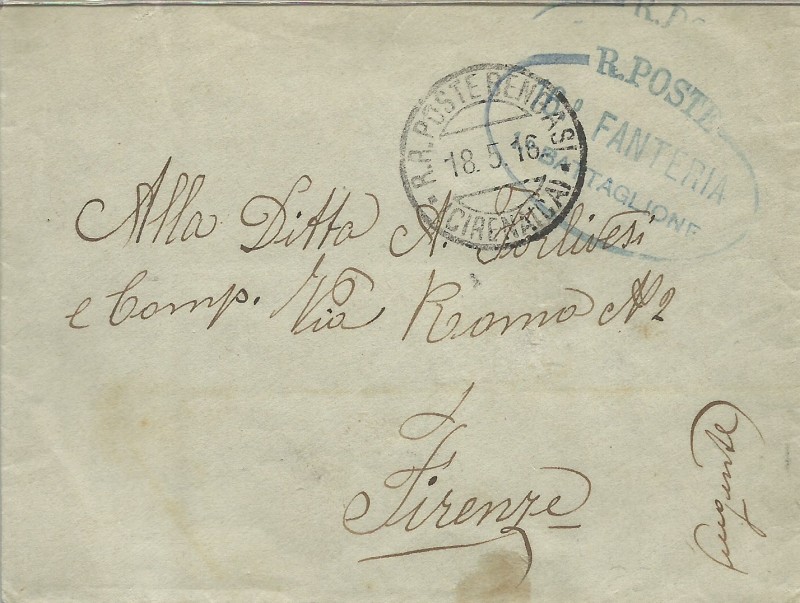 R. POSTE
R. POSTE
FANTERIA
BATTAGLIONE
R.R. POSTE BENGASI
18.5.16
(CIRENAICA)
Alla Ditta A. Forlivesi
e Comp. Via Roma N 2
Firenze
urgente